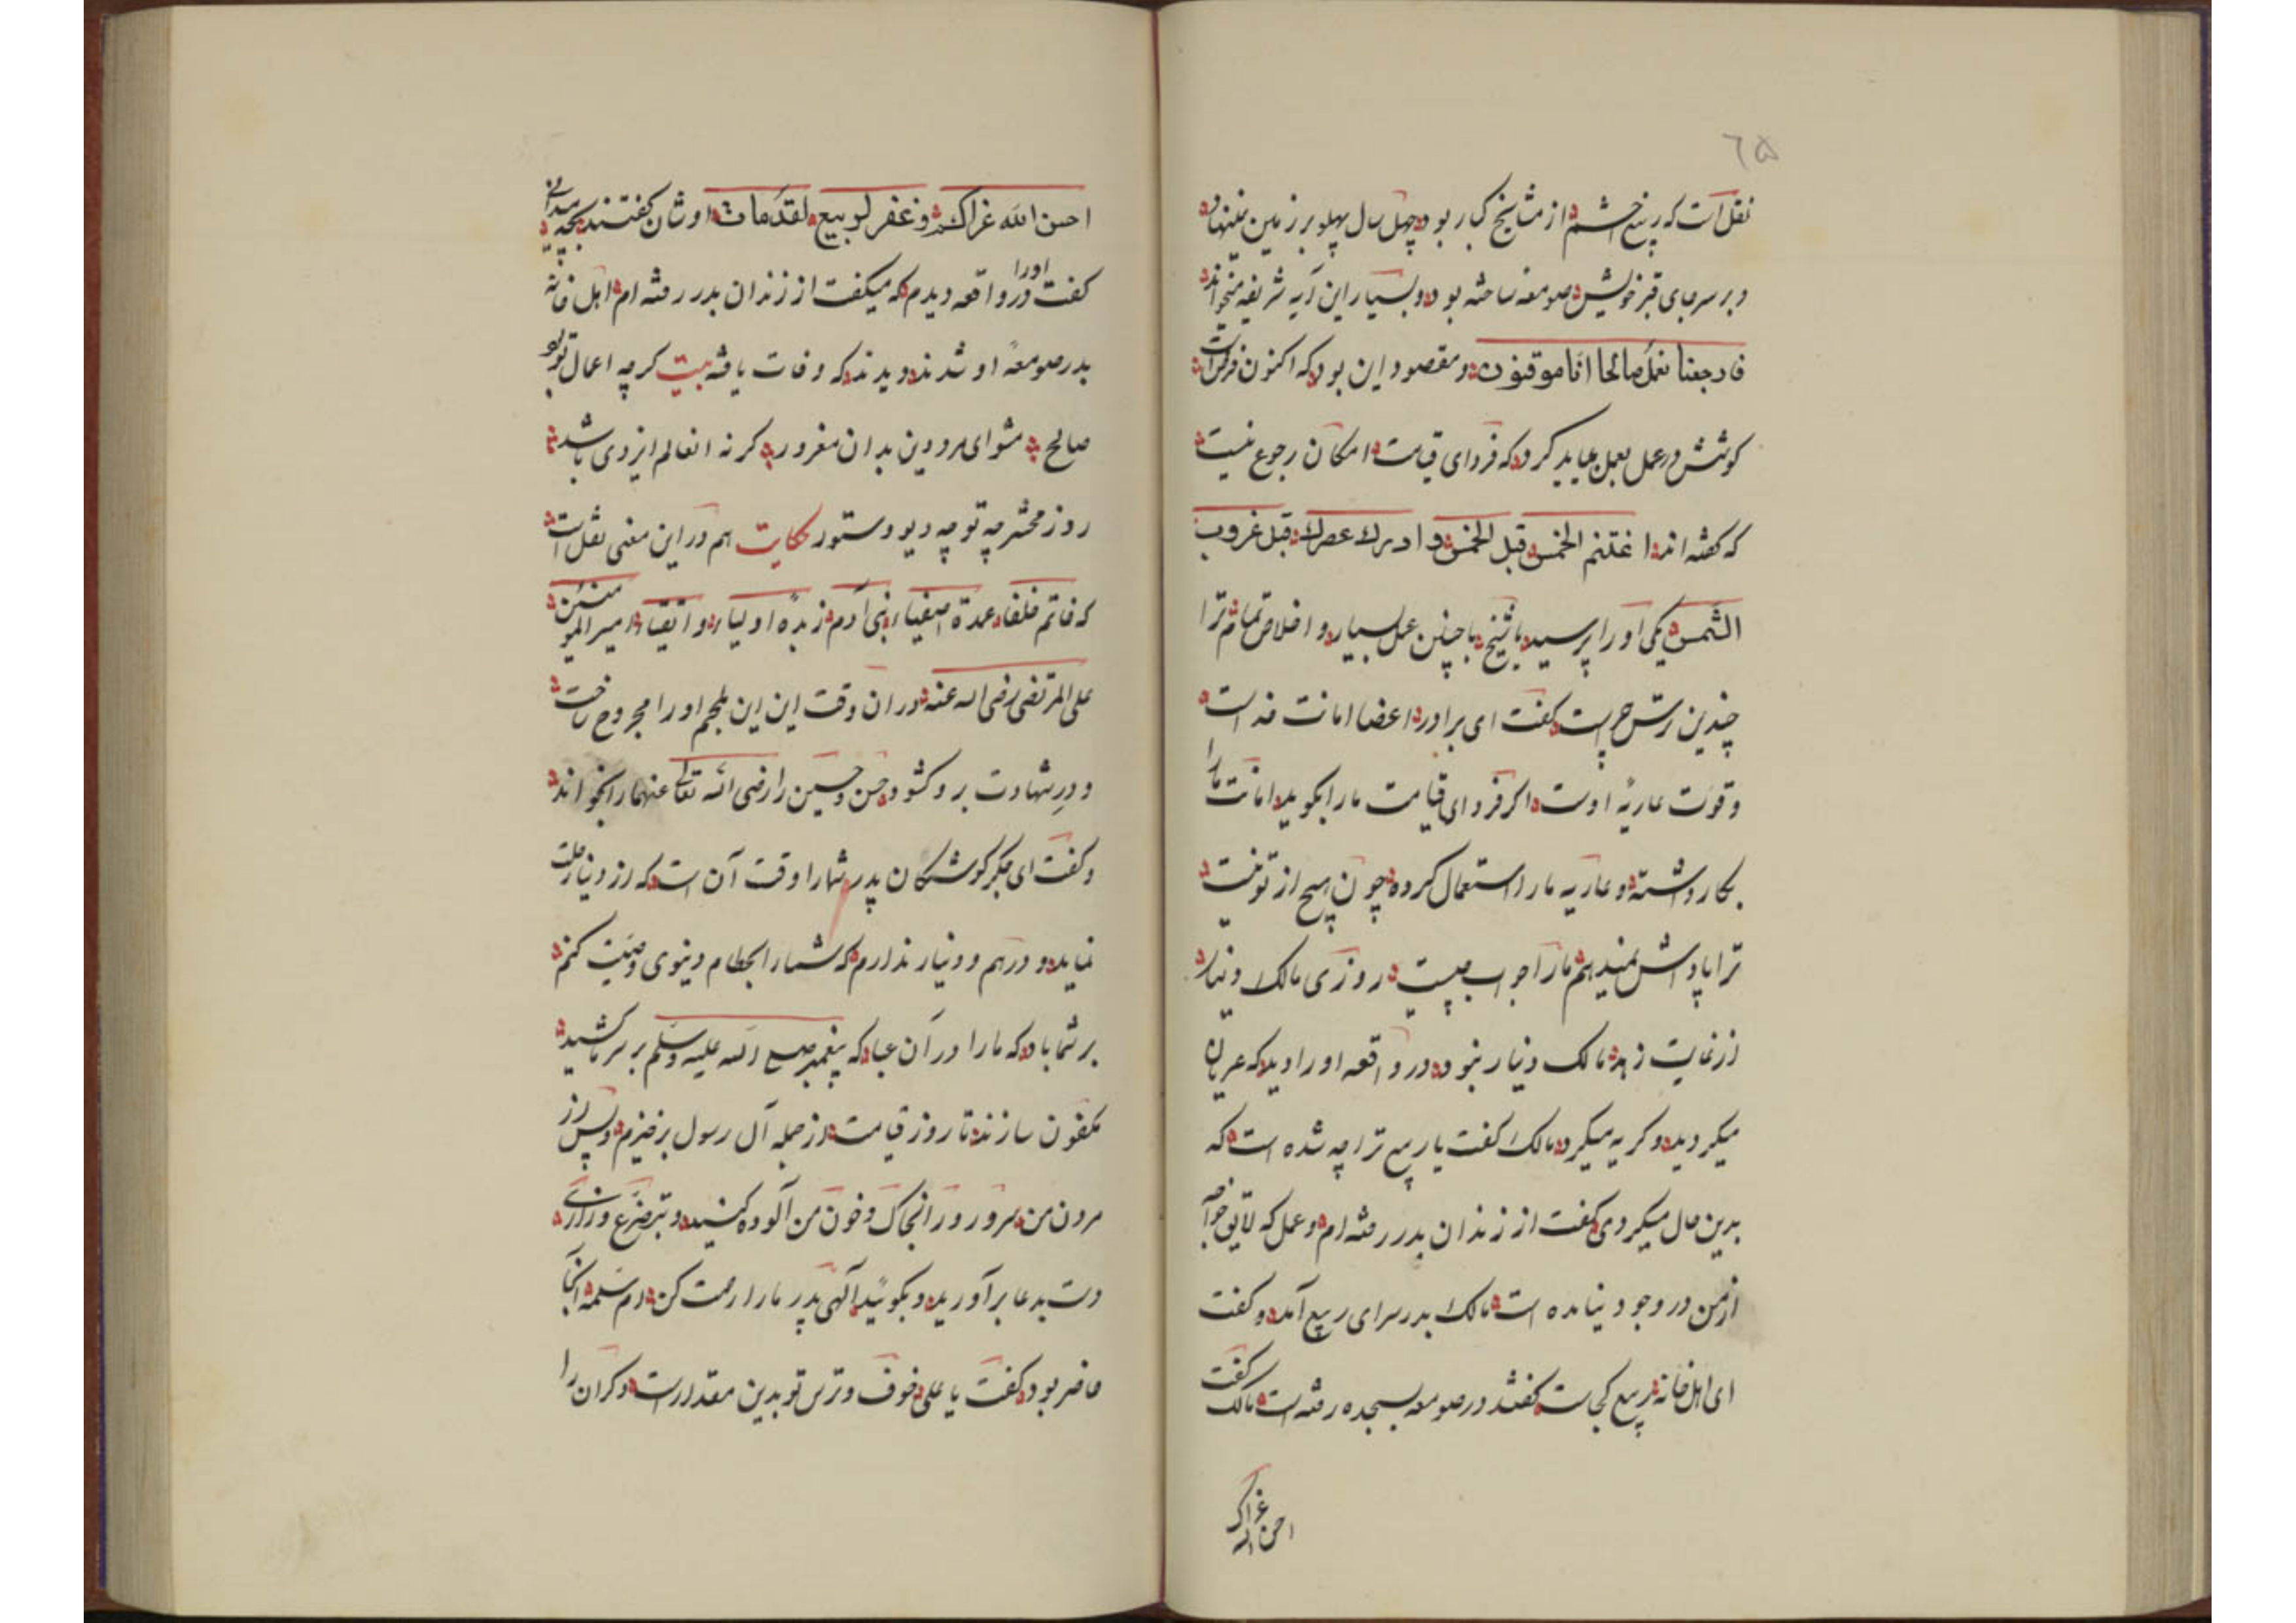 ٦٥
نقل است که ربیع خثیم از مشایخ کبار بود چهل سال پهلو بر زمین ننهاد
و بر سرهای قبر خویش صومعه ساخته بود و بسیار این آیه شریفه میخواند
فارجعنا نعمل صالحا انا موقنون و مقصود این بود که اکنون فرصت است
کوشش در عمل بعمل میباید کرد که فردای قیامت امکان رجوع نیست
که گفته اند اغتنم الخمس قبل الخمس و ادرک عصرک قبل غروب
الشمس یکی او را پرسید یا شیخ با چنین عمل بسیار و اخلاص تمام ترا
چندین ترس چراست گفت ای برادر اعضا امانت خداست
و قوت عاریهٔ اوست اگر فردای قیامت مارا بگوید امانت مارا
بکار داشته و عاریه مارا استعمال کرده چون هیچ از تو نیست
ترا پاداش نمیدهم مارا جواب چیست روزی مالک دینار
از غایت زهد مالک دینار نبود در واقعه او را دید که عریان
میگردید و گریه میکرد مالک گفت یا ربیع ترا چه شده است که
بدین حال میگردی گفت از زندان بدر رفته ام و عمل که لایق خواجه
از من در وجود نیامده است مالک بدر سرای ربیع آمد و گفت
ای اهل خانه ربیع کجاست گفتند در صومعه بسجده رفته است مالک گفت
احسن الله عزاک
احسن الله عزاکم و غفر لربیع لقد مات اوشان گفتند بچه میدانی
گفت او را در واقعه دیدم که میگفت از زندان بدر رفته ام اهل خانه
بدر صومعهٔ او شدند دیدند که وفات یافته بیت گرچه اعمال تو بود
صالح مشو ای مرد دین بدان مغرور گر نه انعام ایزدی باشد
روز محشر چه تو چه دیو و ستور حکایت هم در این معنی نقل است
که خاتم خلفا عمدة اصفیاء بنی آدم زبدهٔ اولیاء و اتقیاء امیر المؤمنین
علی المرتضی رضی الله عنه در ان وقت این ابن ملجم او را مجروح ساخت
و در شهادت برو گشود حسن و حسین را رضی الله تعالی عنهما را بخواند
و گفت ای جگر گوشگان پدر شما را وقت آن است که از دنیا رحلت
نماید و درهم و دینار ندارم که شمارا بحطام دنیوی وصیت کنم
بر شما باد که مارا در آن عبا که پیغمبر صلی الله علیه وسلم بر سر ما کشید
مکفون سازند تا روز قیامت از جمله آل رسول برخیزم و پس از
مردن من سر و رو را بخاک و خون من آلوده کنید و بتضرع و زاری
دست بدعا برآورید و بگوئید الهی پدر مارا رحمت کن ام سلمه آنجا
حاضر بود گفت یا علی خوف و ترس تو بدین مقدار است دگران را